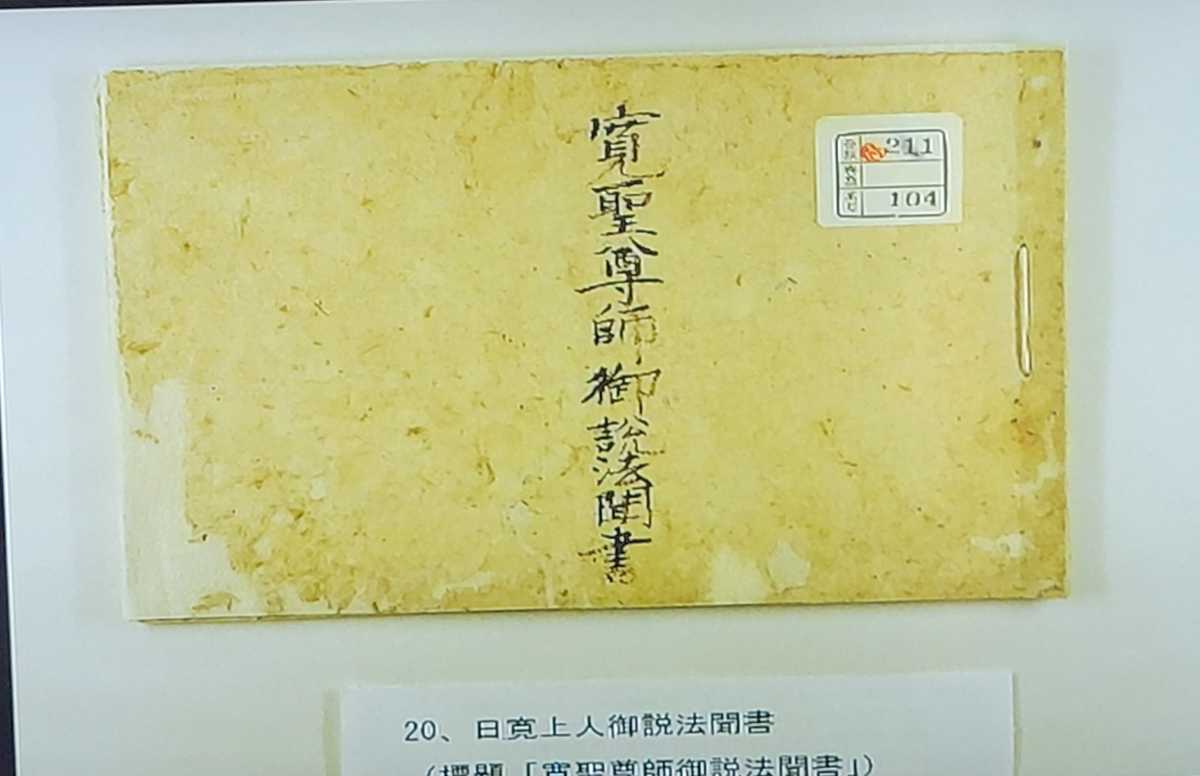 寛聖尊師御説法聞書
211
104
20、日寛上人御説法聞書
（標題「寛聖尊師御説法聞書」）